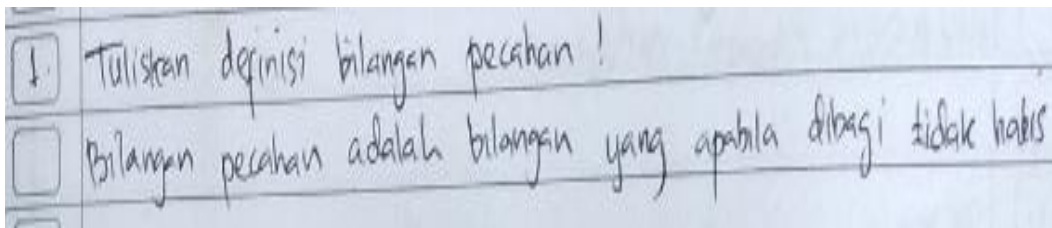 1. Tuliskan definisi bilangan pecahan !
Bilangan pecahan adalah bilangan yang apabila dibagi tidak habis